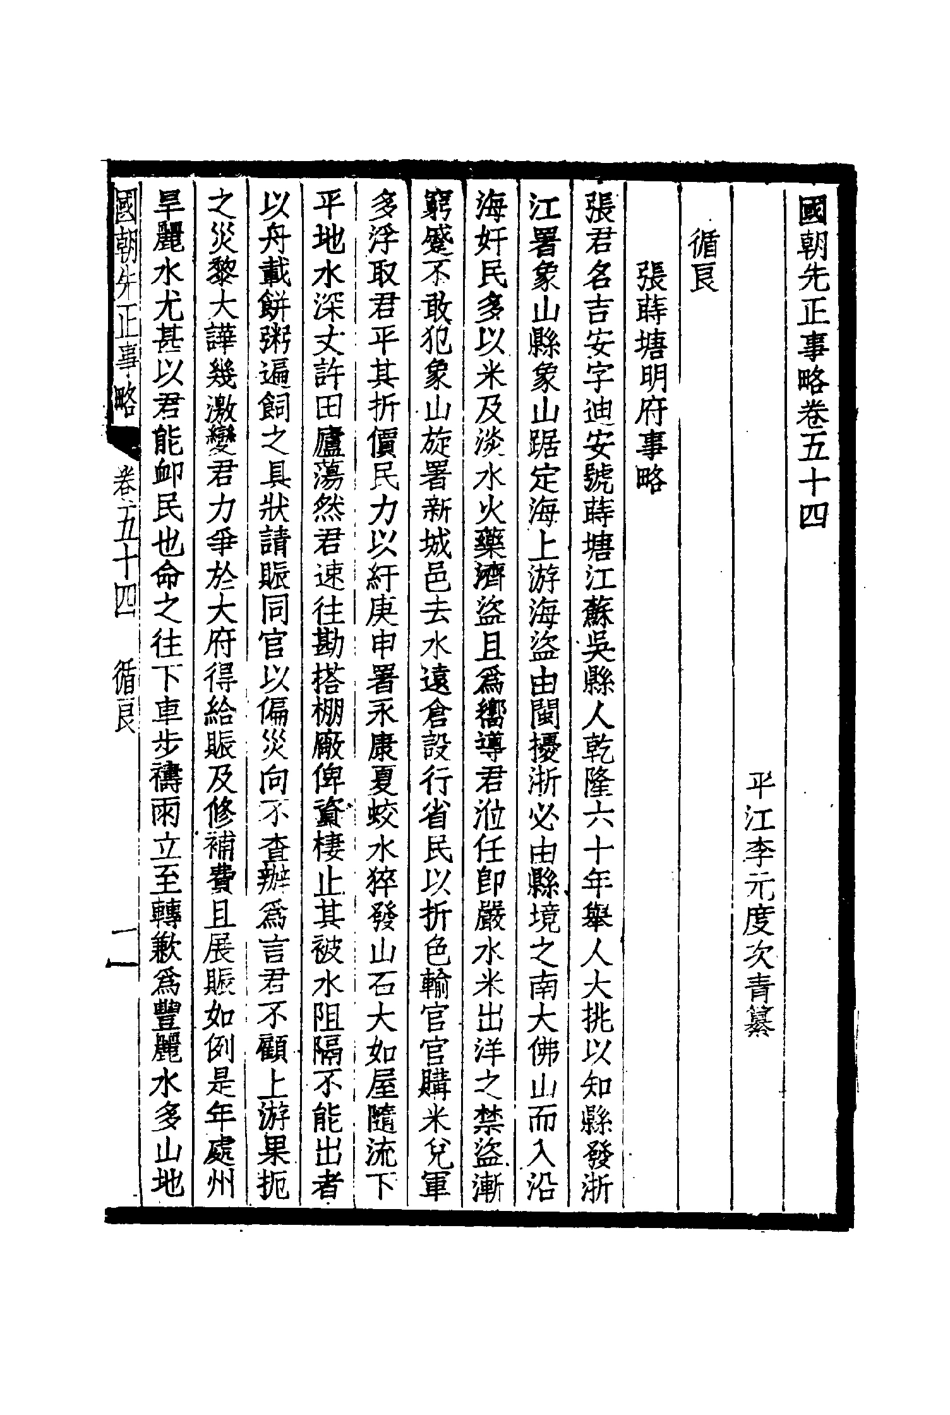 國朝先正事略卷五十四
平江李元度次青纂
循良
張蒔塘明府事略
張君名吉安字迪安號蒔塘江蘇吳縣人乾隆六十年舉人大挑以知縣發浙
江署象山縣象山踞定海上游海盜由閩擾浙必由縣境之南大佛山而入沿
海奸民多以米及淡水火藥濟盜且爲嚮導君涖任卽嚴水米出洋之禁盜漸
窮蹙不敢犯象山旋署新城邑去水遠倉設行省民以折色輸官官購米兌軍
多浮取君平其折價民力以紓庚申署永康夏蛟水猝發山石大如屋隨流下
平地水深丈許田廬蕩然君速往勘搭棚廠俾資棲止其被水阻隔不能出者
以舟載餅粥遍飼之具狀請賑同官以偏災向不查辦爲言君不顧上游果扼
之災黎大譁幾激變君力爭於大府得給賑及修補費且展賑如例是年處州
旱麗水尤甚以君能卹民也命之往下車步禱雨立至轉歉爲豐麗水多山地
國朝先正事略 卷五十四 循良 一